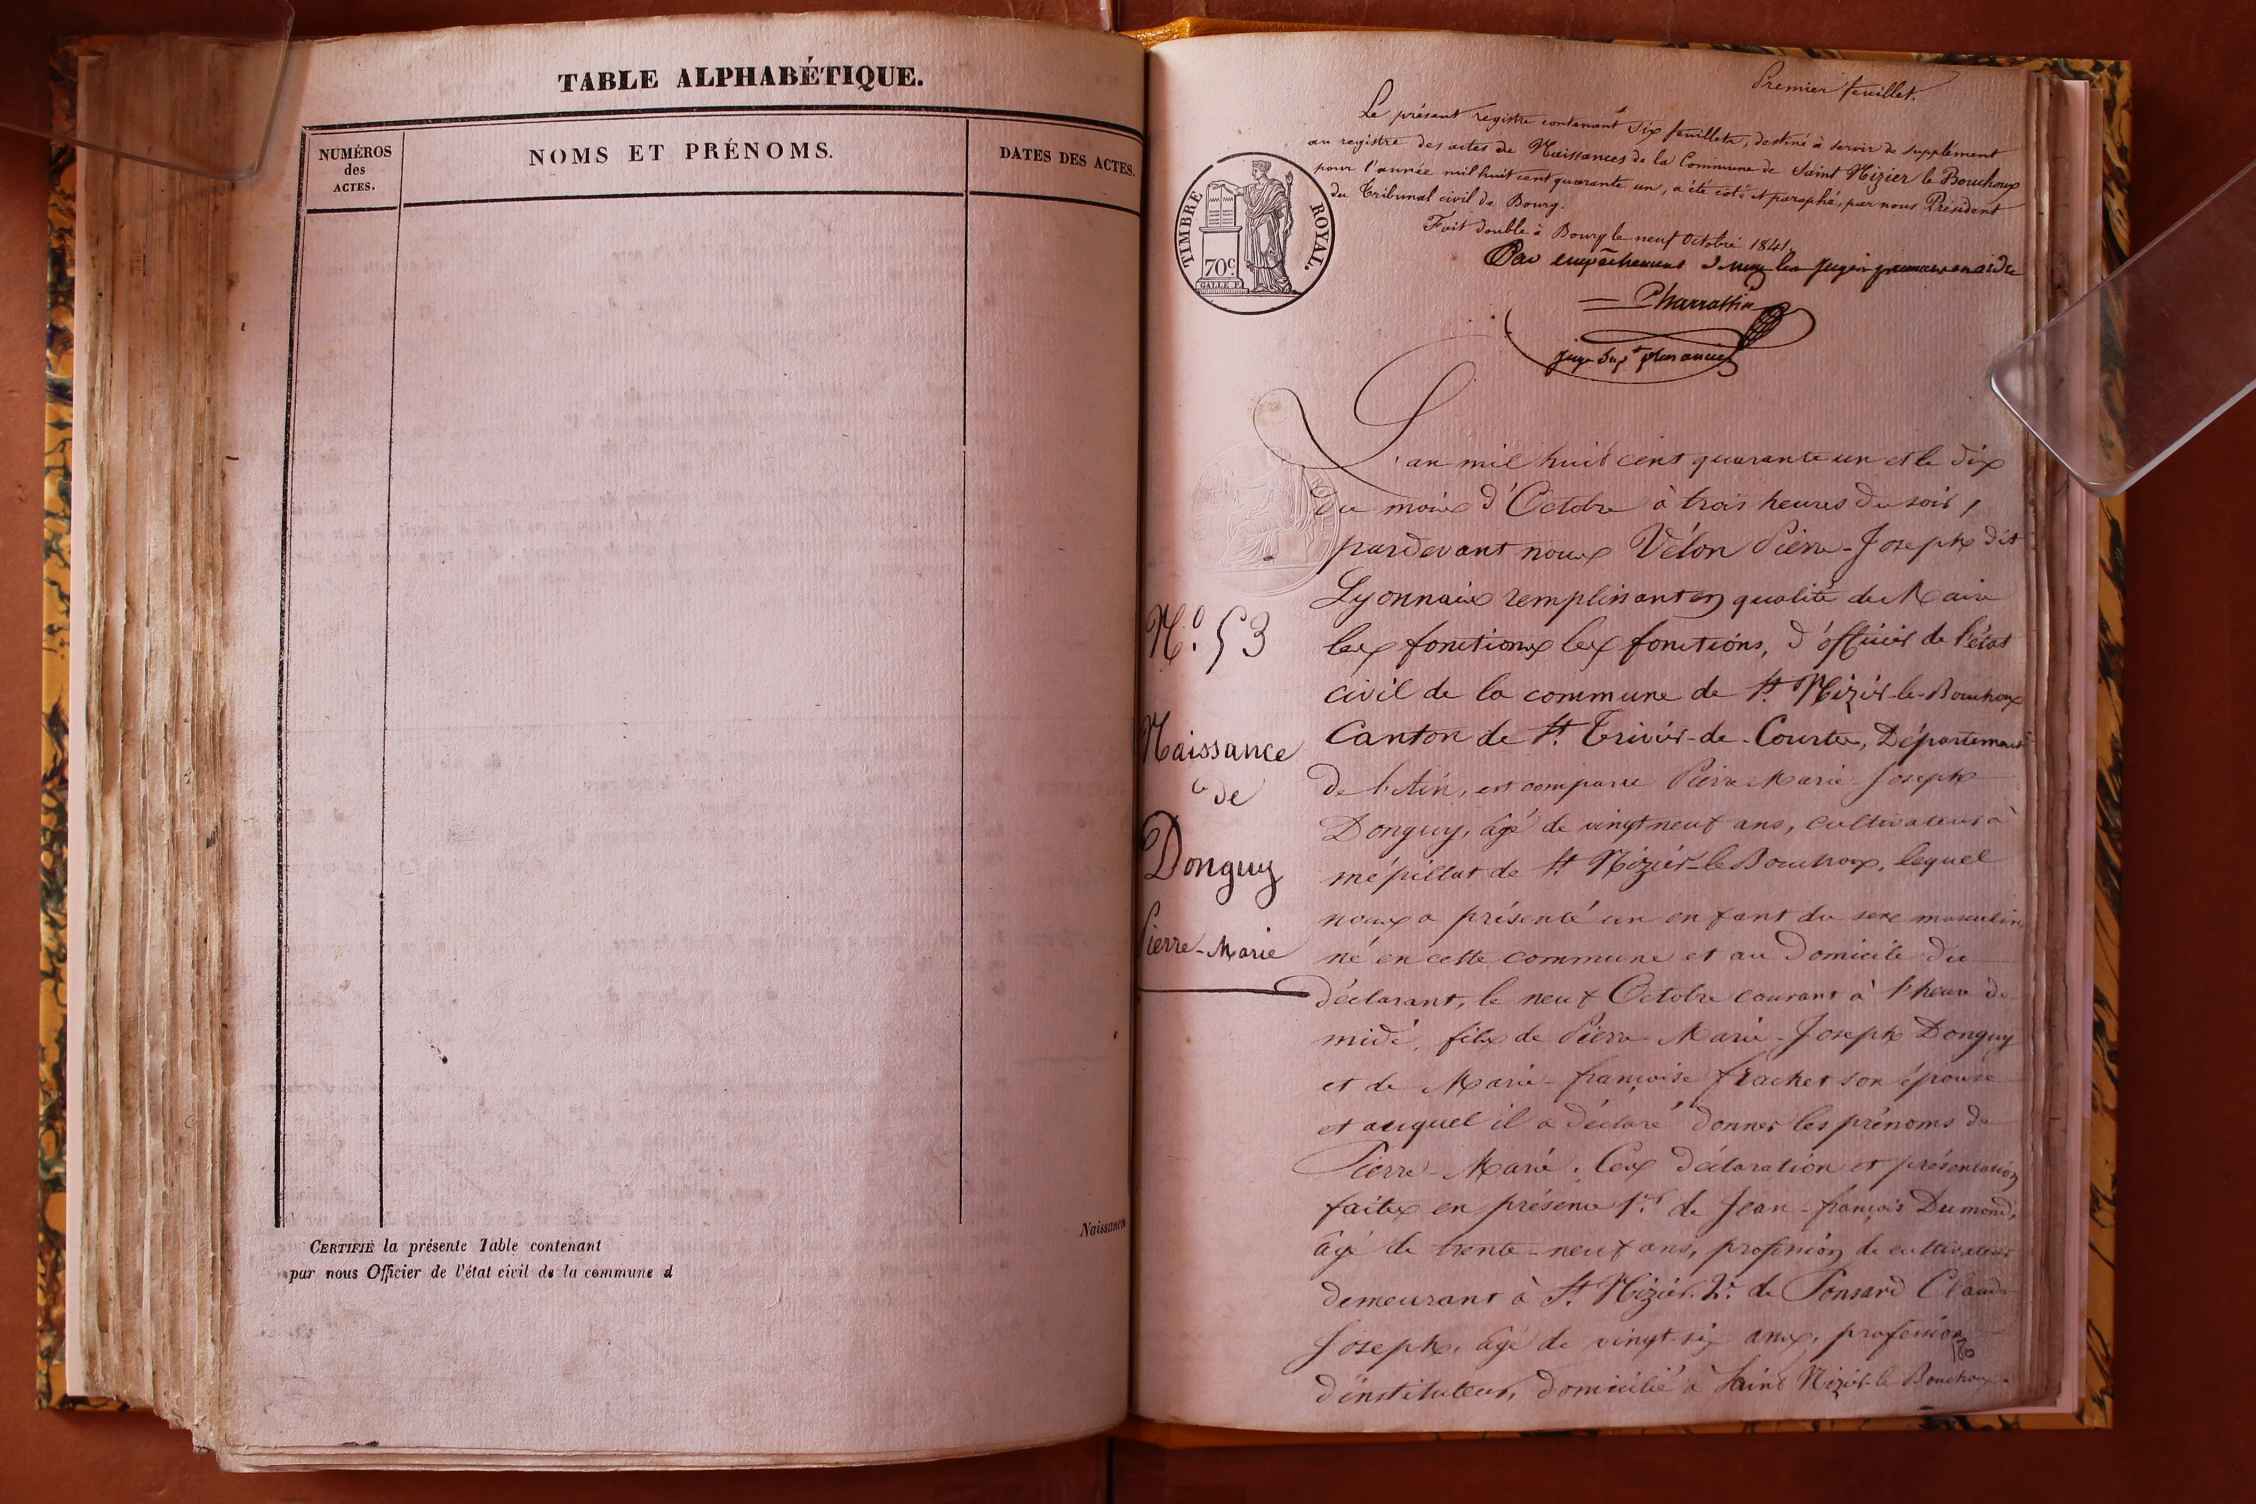 TABLE ALPHABÉTIQUE.
NUMÉROS
des
ACTES.
NOMS ET PRÉNOMS.
DATES DES ACTES.
Naissances
CERTIFIÉ la présente Table contenant
par nous Officier de l'état civil de la commune d
Premier feuillet.
Le présent registre contenant Six feuillets, destiné à servir de supplément
au registre des actes de Naissances de la Commune de Saint Nizier le Bouchoux
pour l'année mil huit cent quarante un, a été coté et paraphé, par nous Président
du Tribunal civil de Bourg.
Fait double à Bourg le neuf Octobre 1841.
Par empêchement
TIMBRE ROYAL.
70c
GALLE F.
juge Sup.t plus ancien
L'an mil huit cent quarante un et le dix
du mois d'Octobre à trois heures du soir,
pardevant nous Vélon Pierre-Joseph dit
Lyonnais remplissant en qualité de Maire
les fonctions les fonctions, d'officier de l'état
civil de la commune de St. Nizier-le-Bouchoux
Canton de St. Trivier-de-Courtes, Département
de l'Ain, est comparu Pierre Marie-Joseph
Donguy, âgé de vingt neuf ans, cultivateur à
mépillat de St Nizier-le-Bouchoux, lequel
nous a présenté un enfant du sexe masculin
né en cette commune et au domicile du
déclarant, le neuf Octobre courant à l'heure de
midi, fils de Pierre Marie-Joseph Donguy
et de Marie-françoise frachet son épouse
et auquel il a déclaré donner les prénoms de
Pierre-Marie. Ces déclaration et présentation
faites en présence 1.er de Jean-françois Dumond,
âgé de trente-neuf ans, profession de cultivateur
demeurant à St. Nizier. 2.e de Ponsard Claude
Joseph, âgé de vingt-six ans, profession
d'instituteur, domicilié à Saint Nizier-le Bouchoux.
N.o 53
Naissance
de
Donguy
Pierre-Marie